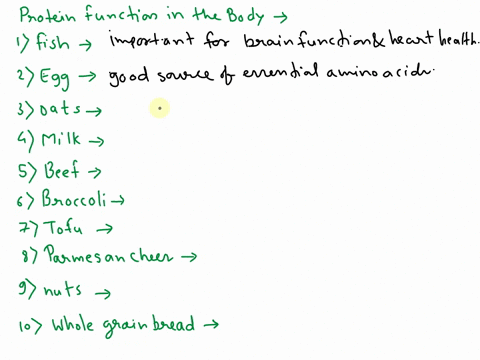 Protein function in the Body →
1) fish → important for brain function & heart health.
2) Egg → good source of essential amino acids.
3) oats →
4) Milk →
5) Beef →
6) Broccoli →
7) Tofu →
8) Parmesan cheer →
9) nuts →
10) Whole grain bread →